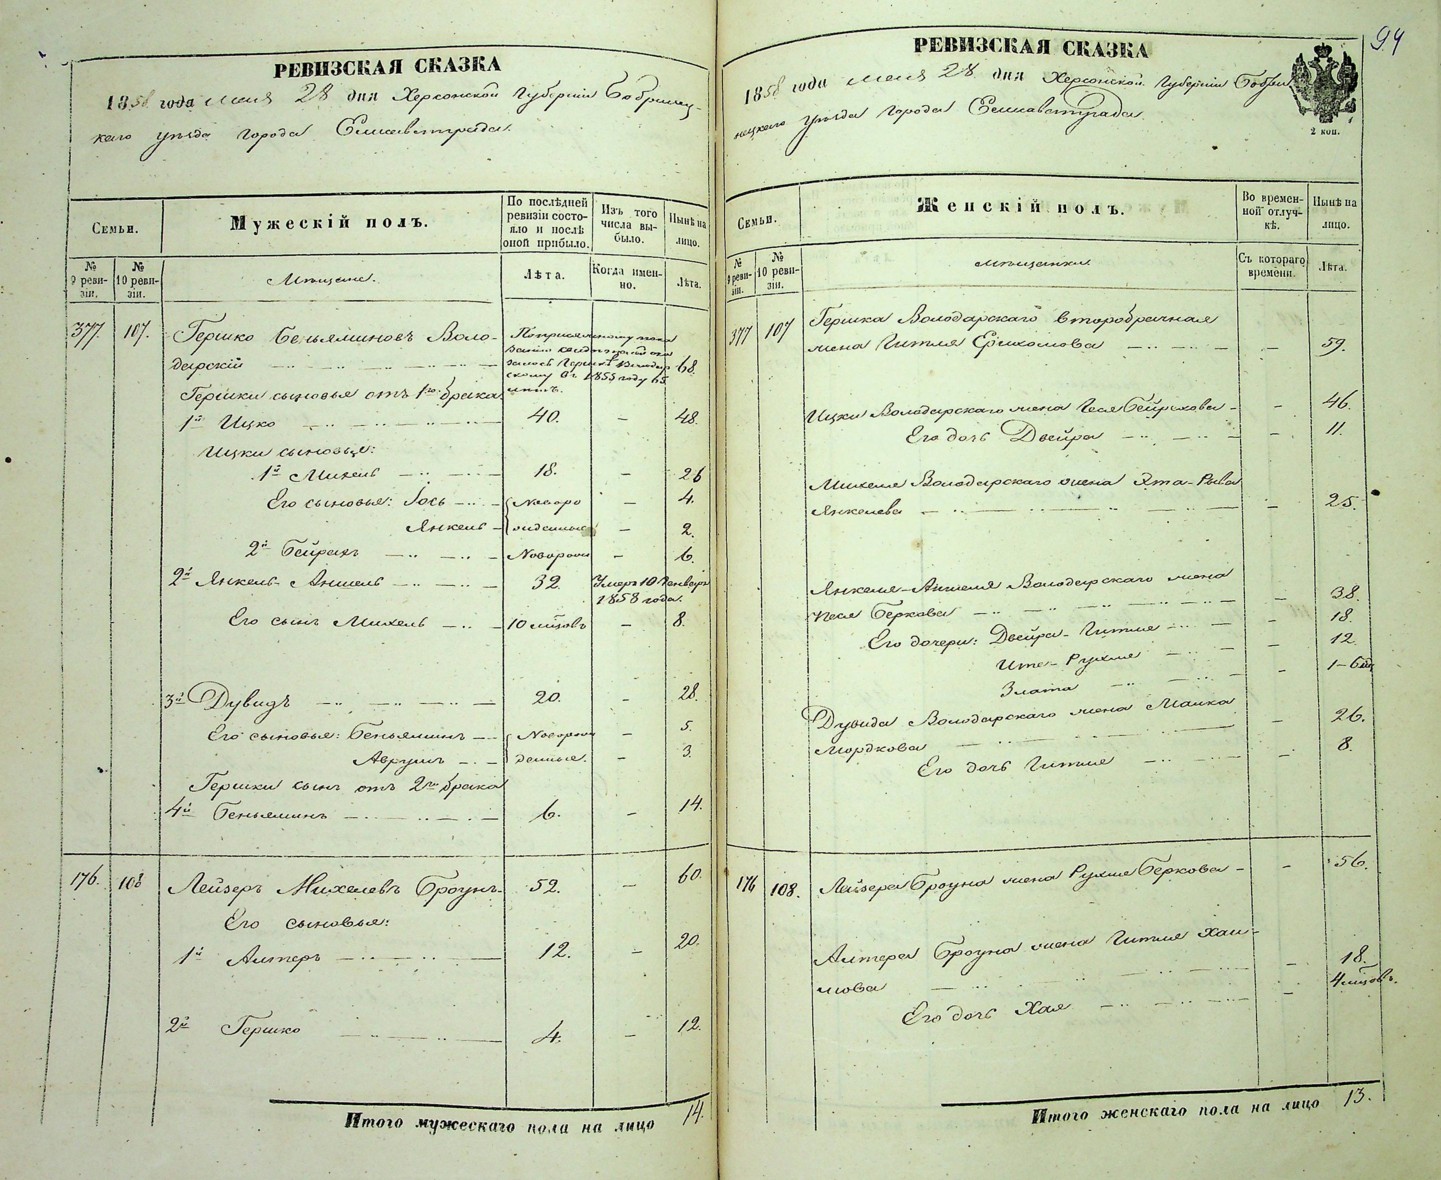 РЕВИЗСКАЯ СКАЗКА
1858 года мая 28 дня Херсонской Губерніи Бобринец-
каго уѣзда города Елисаветграда.
Семьи.
Мужескій полъ.
По послѣдней ревизіи состо-
яло и послѣ
оной прибыло.
Изъ того числа вы-
было.
Нынѣ на лицо.
№ 9 реви-
зіи.
№ 10 реви-
зіи.
Мѣщане.
Лѣта.
Когда имен-
но.
Лѣта.
377. 107. Гершко Беньяминовъ Воло-
дарскій 68.
скому въ 1855 году 65
лѣтъ.
Гершки сыновья отъ 1го брака
1й Ицко 40. – 48.
Ицки сыновья:
1й Михель 18. – 26
Его сыновья: Іось Новоро – 4.
Янкель жденные – 2.
2й Бейрахъ Новорожд – 6.
2й Янкель-Аншель 32. Умеръ 10 Генваря
1858 года.
Его сынъ Михель 10 мѣцовъ – 8.
3й Дувидъ 20. – 28.
Его сыновья: Беньяминъ Новорож – 5.
Аврумъ денные. – 3.
Гершки сынъ отъ 2го брака
4й Беньяминъ 6. – 14.
176. 108 Лейзеръ Михелевъ Броунъ 52. – 60.
Его сыновья:
1й Алтеръ 12. – 20.
2й Гершко 4. – 12.
Итого мужескаго пола на лицо 14.
94
РЕВИЗСКАЯ СКАЗКА
1858 года мая 28 дня Херсонской Губерніи Бобри
нецкаго уѣзда города Елисаветграда
2 коп.
Семьи.
Женскій полъ.
Во времен-
ной отлуч-
кѣ.
Нынѣ на
лицо.
№ 9 реви-
зіи.
№ 10 реви-
зіи.
мѣщанки
Съ котораго
времени.
Лѣта.
377 107 Гершка Володарскаго второбрачная
жена Гитля 59.
Ицки Володарскаго жена – 46.
Его дочь Двейра – 11.
Михеля Володарскаго жена Эта-Рива
Янкелева – 25.
Янкеля-Аншеля Володарскаго жена
Песя Беркова – 38.
Его дочери: Двейра-Гитля – 18.
Ита-Рухля – 12
Злата – 1–6 мц
Дувида Володарскаго жена Малка
Мордкова – 26.
Его дочь Гитля – 8.
176 108. Лейзера Броуна жена Рухля Беркова – 56.
Алтера Броуна жена Гитля Хаи-
мова – 18.
Его дочь Хая – 4 мѣцовъ.
Итого женскаго пола на лицо 13.